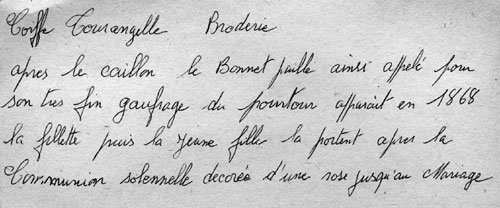 Coiffe Tourangelle Broderie
apres le caillon le Bonnet paille ainsi appelé pour
son tres fin gaufrage du pourtour apparait en 1868
la fillette puis la jeune fille la portent apres la
Communion solennelle decorée d'une rose jusqu'au Mariage